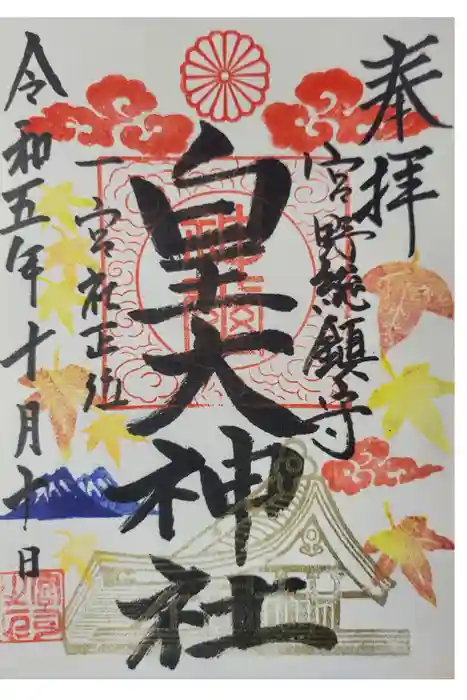 奉拝
宮野総鎮守
皇大神社
一宮社正位
令和五年十月十日